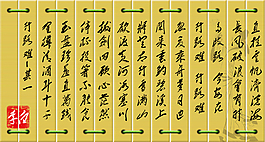 行路难其一
金樽清酒斗十千
玉盘珍羞直万钱
停杯投箸不能食
拔剑四顾心茫然
欲渡黄河冰塞川
将登太行雪满山
闲来垂钓碧溪上
忽复乘舟梦日边
行路难 行路难
多歧路 今安在
长风破浪会有时
直挂云帆济沧海